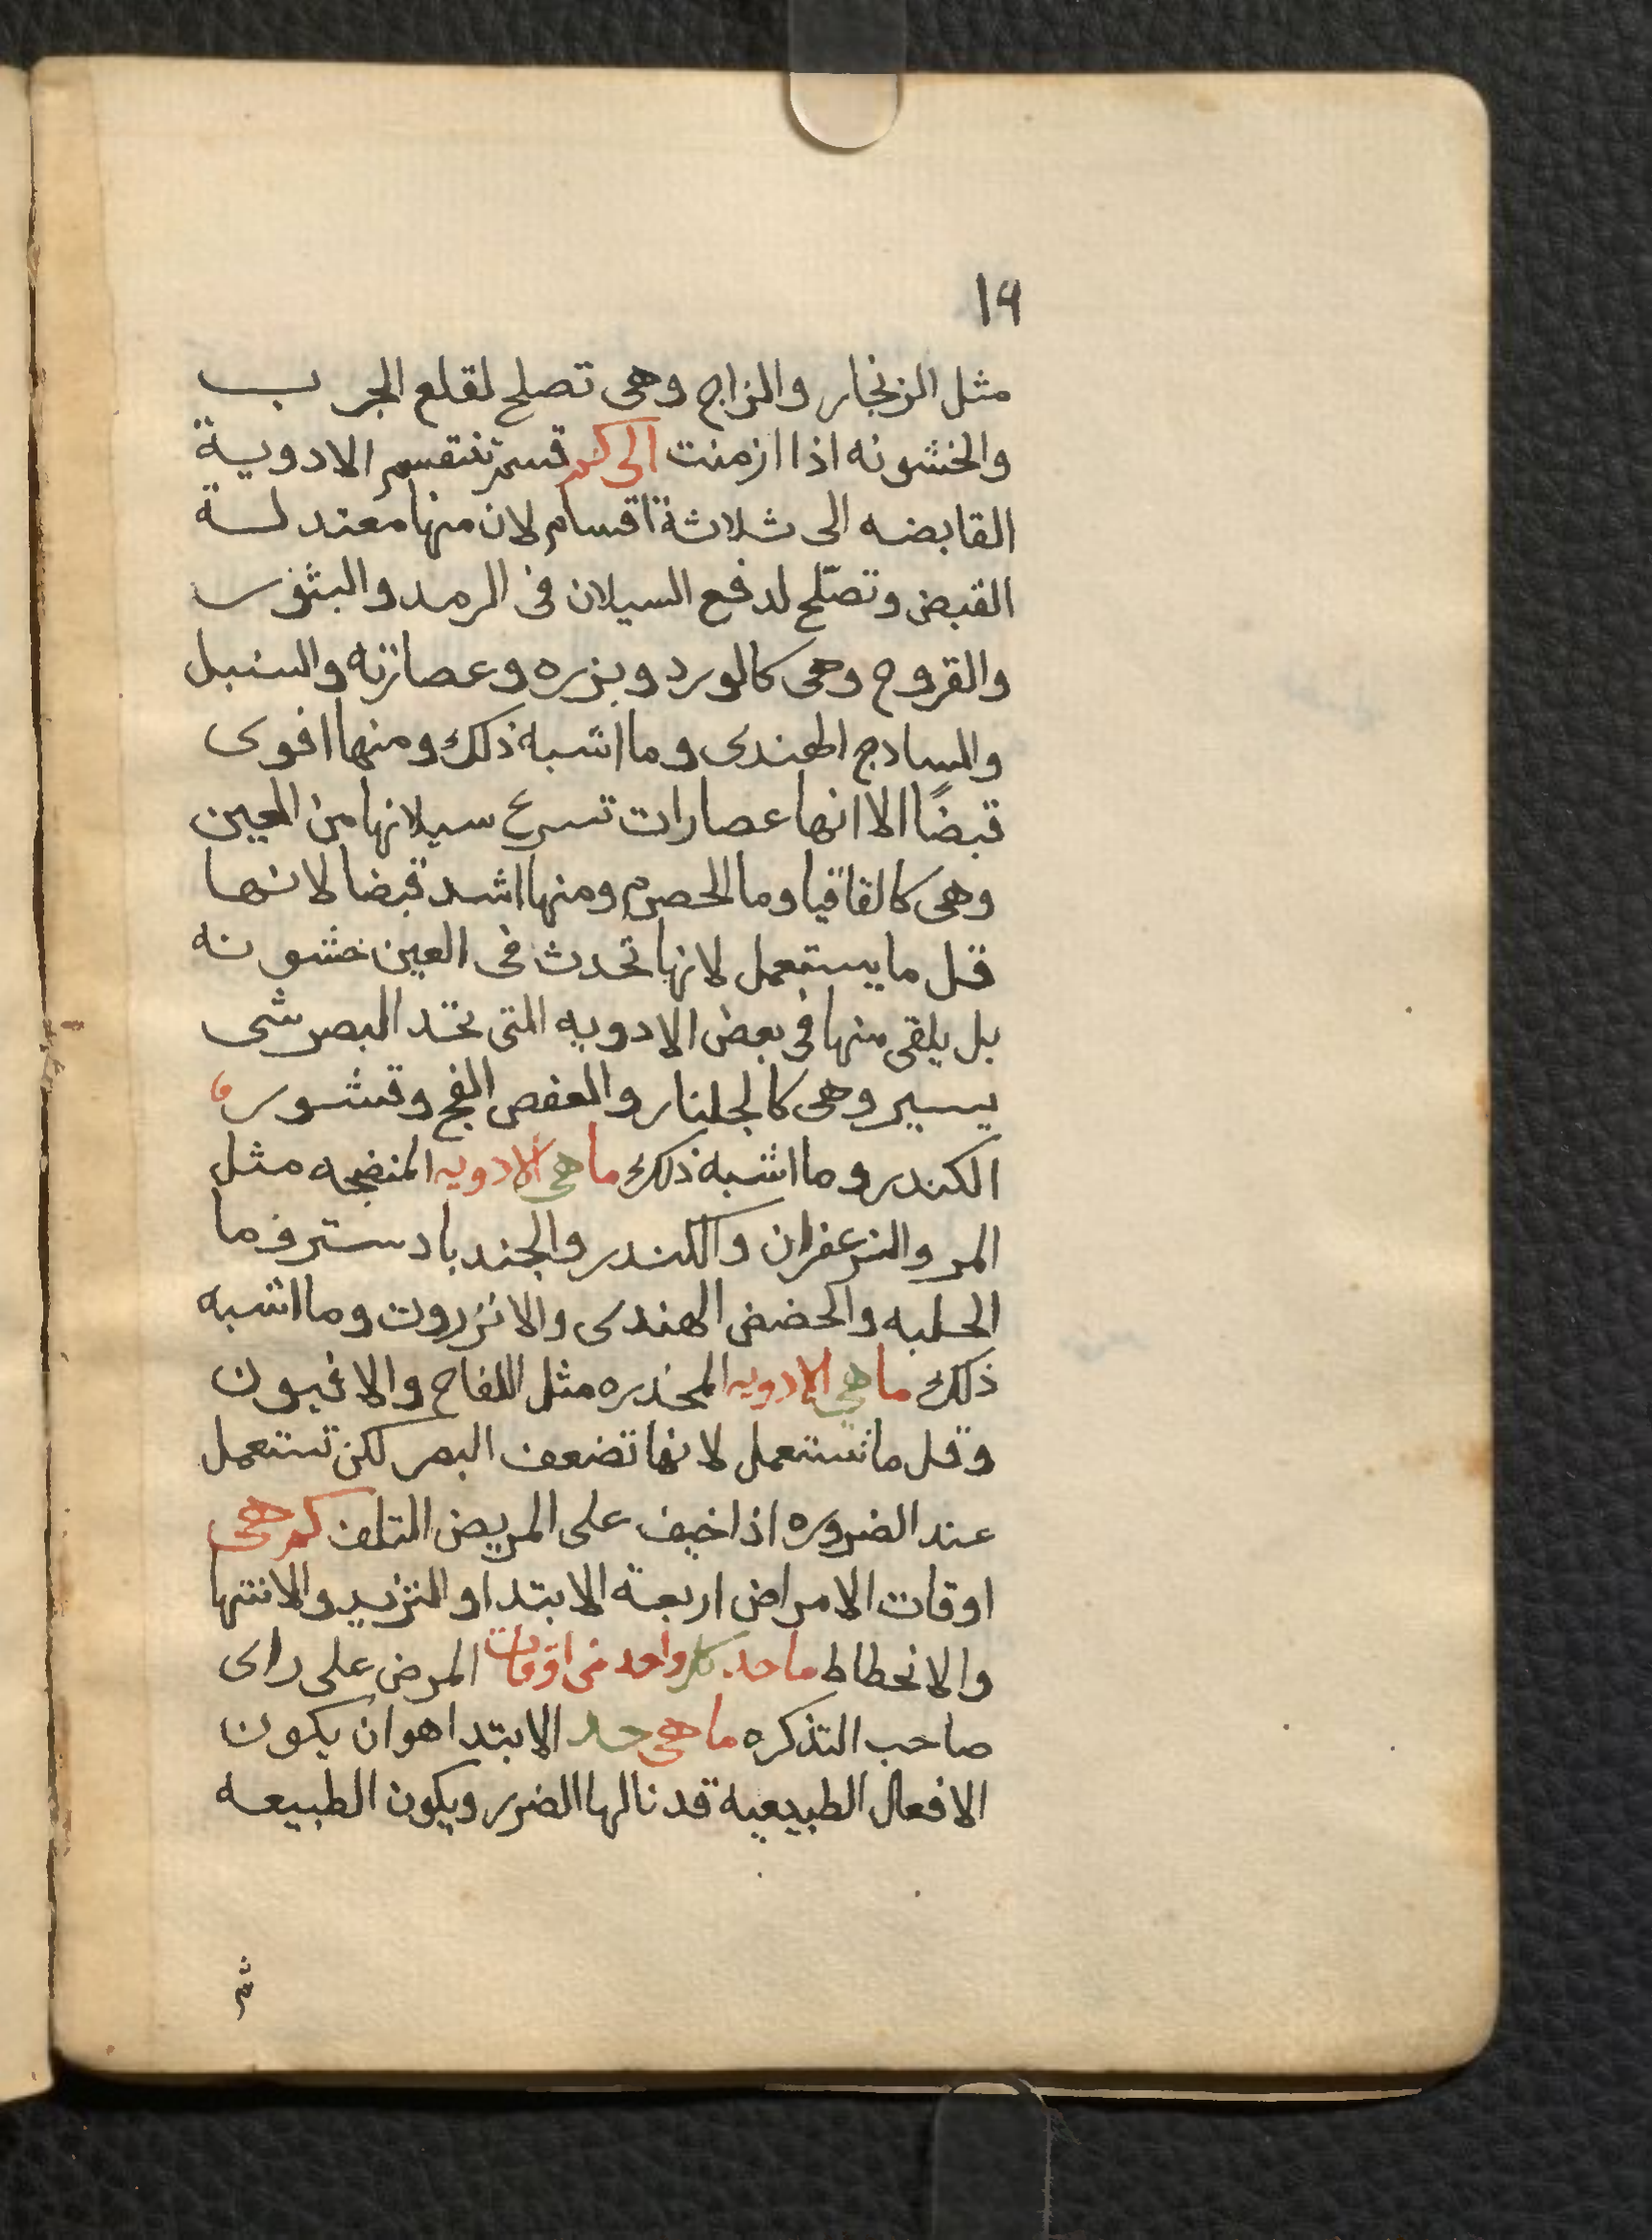 ١٩
مثل الزنجار والزاج وهى تصلح لقلع الجرب
والخشونه اذا ازمنت الى كم قسم تنقسم الادوية
القابضه الى ثلاثة اقسام لان منها معتدلة
القبض وتصلح لدفع السيلان فى الرمد والبثور
والقروح وهى كالورد وبزره وعصارته والسنبل
والسادج الهندى وما اشبه ذلك ومنها اقوى
قبضًا الا انها عصارات تسرع سيلانها من العين
وهى كالقاقيا وما الحصرم ومنها اشد قبضا لانها
قل ما يستعمل لانها تحدث فى العين خشونه
بل يلقى منها فى بعض الادويه التى تحد البصر شى
يسير وهى كالجلنار والعفص الفج وقشور
الكندر وما اشبه ذلك ما هى الادويه المنضجه مثل
المر والزعفران والكندر والجندبادستر وما
الحلبه والحضض الهندى والانزروت وما اشبه
ذلك ما هى الادويه المخدره مثل اللفاح والافيون
وقل ما تستعمل لانها تضعف البصر لكن تستعمل
عند الضروره اذا خيف على المريض التلف كم هى
اوقات الامراض اربعة الابتدا والتزيد والانتها
والانحطاط ما حد كل واحد من اوقات المرض على راى
صاحب التذكره ما هى حد الابتدا هو ان يكون
الافعال الطبيعية قد نالها الضرر ويكون الطبيعه